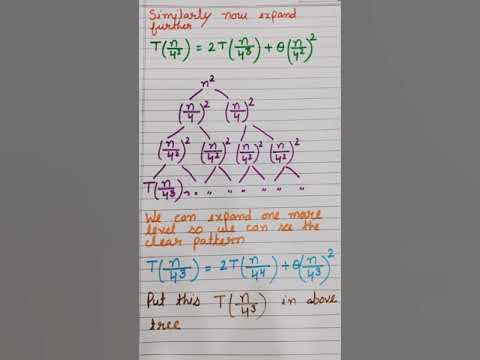 Similarly now expand
further
T(n/4²) = 2T(n/4³) + θ(n/4²)²
n²
(n/4)² (n/4)²
(n/4²)² (n/4²)² (n/4²)² (n/4²)²
T(n/4³) " " " " " " "
We can expand one more
level so we can see the
clear pattern
T(n/4³) = 2T(n/4⁴) + θ(n/4³)²
Put this T(n/4³) in above
tree